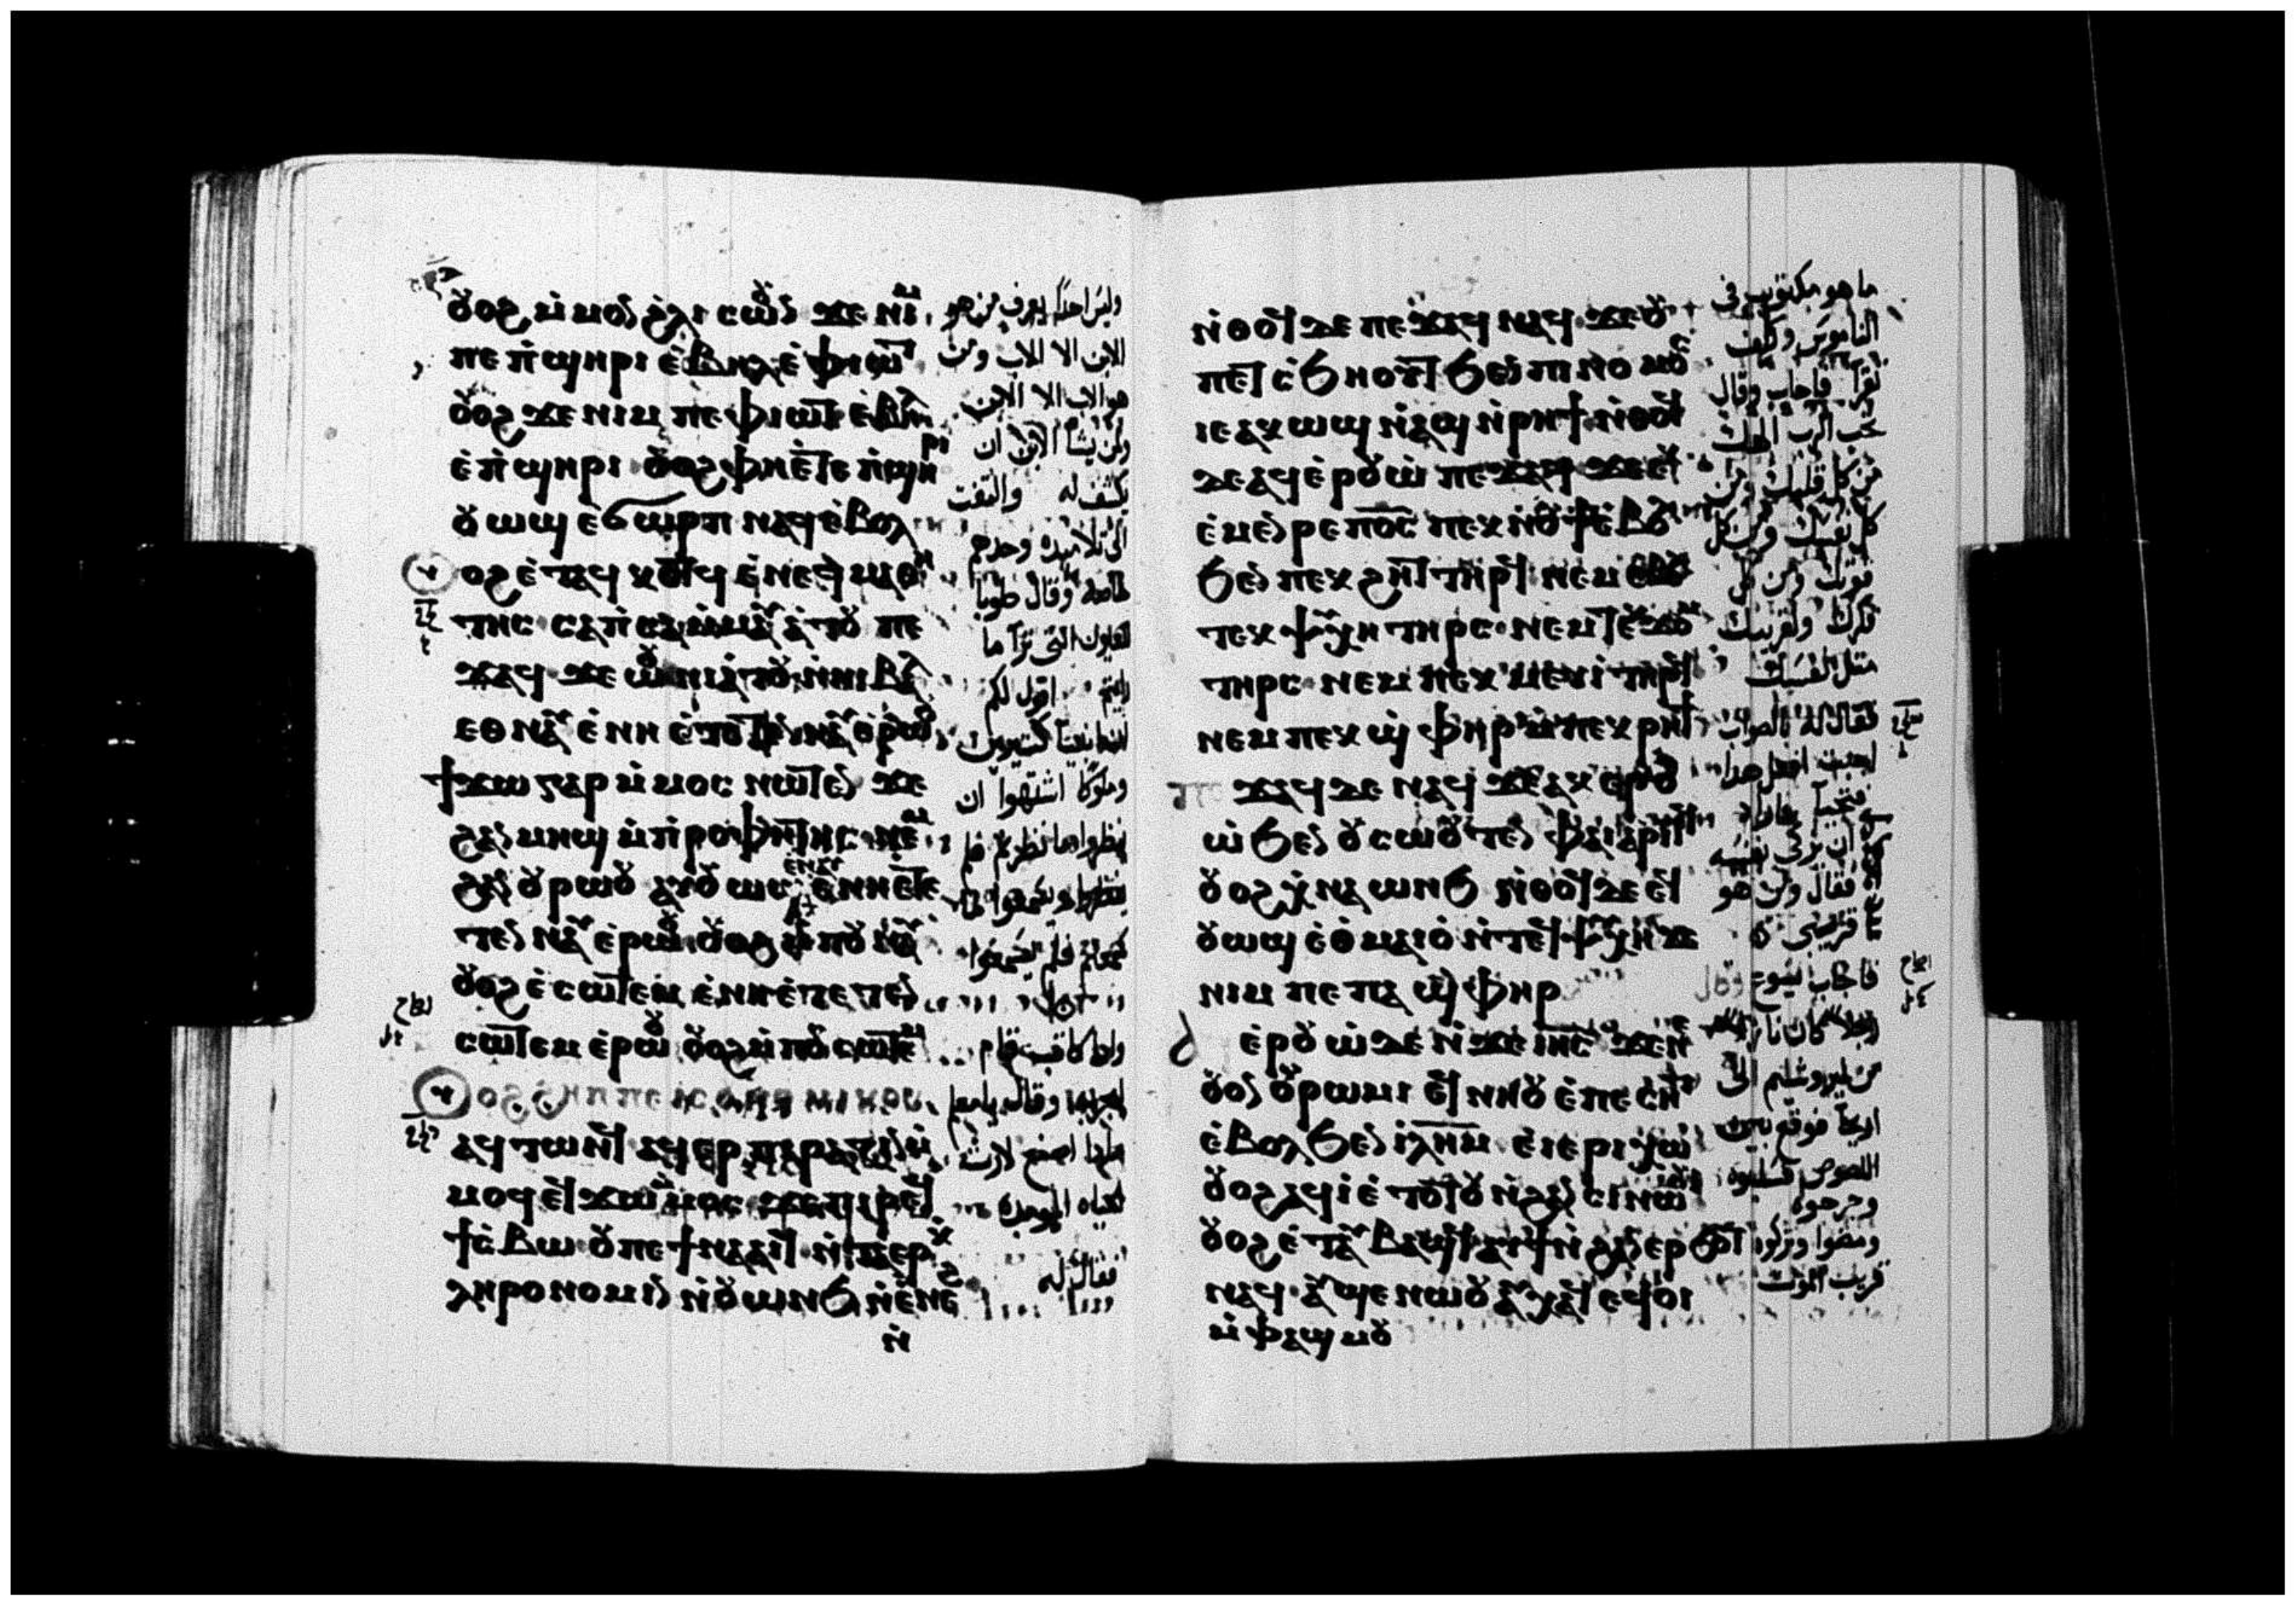 ⲟⲩⲟϩ ⲙ̇ⲙⲟⲛ ϩ̇ⲗⲓ ⲥⲱⲟⲩⲛ ϫⲉ ⲛⲓⲙ
ⲡⲉ ⲡ̇ϣⲏⲣⲓ ⲉ̇ⲃⲏⲗ ⲉ̇ ⲫⲓⲱⲧ
ⲟⲩⲟϩ ϫⲉ ⲛⲓⲙ ⲡⲉ ⲫⲓⲱⲧ ⲉ̇ⲃⲏⲗ
ⲉ̇ ⲡ̇ϣⲏⲣⲓ ⲟⲩⲟϩ ⲫⲏⲉ̇ⲧⲉ ⲡ̇ϣⲏⲣⲓ
ⲟⲩⲱϣ ⲉ̇ϭⲱⲣⲡ ⲛⲁϥ ⲉ̇ⲃⲟⲗ
ⲟⲩⲟϩ ⲉ̇ⲧⲁϥⲕⲟⲧϥ ⲉ̇ⲛⲉϥⲙⲁⲑⲏ
ⲧⲏⲥ ⲥⲁⲡ̇ⲥⲁ ⲙ̇ⲙⲁⲩⲁ̇ⲧⲟⲩ ⲡⲉ
ϫⲁϥ ϫⲉ ⲱⲟⲩⲛⲓⲁ̇ⲧⲟⲩ ⲛ̇ⲛⲓⲃⲁⲗ
ⲉⲑⲛⲁⲩ ⲉ̇ⲛⲏ ⲉ̇ⲧⲟⲧⲉⲛⲛⲁⲩ ⲉⲣⲱⲟⲩ
ϯϫⲱ ⲅⲁⲣ ⲙ̇ⲙⲟⲥ ⲛⲱⲧⲉⲛ ϫⲉ
ϩⲁⲛⲙⲏϣ ⲙ̇ⲡ̇ⲣⲟⲫⲏⲧⲏⲥ ⲛⲉⲙ
ϩⲁⲛⲟⲩⲣⲱⲟⲩ ⲁⲩⲟⲩⲱϣ ⲉ̇ⲛⲁⲩ ⲉ̇ⲛⲏⲉⲧⲉ
ⲧⲉⲛⲛⲁⲩ ⲉ̇ⲣⲱⲟⲩ ⲟⲩⲟϩ ⲙ̇ⲡⲟⲩⲛⲁⲩ
ⲟⲩⲟϩ ⲉ̇ⲥⲱⲧⲉⲙ ⲉ̇ⲛⲏⲉ̇ⲧⲉⲧⲉⲛ
ⲥⲱⲧⲉⲙ ⲉ̇ⲣⲱⲟⲩ ⲟⲩⲟϩ ⲙ̇ⲡⲟⲩⲥⲱⲧⲉⲙ
ⲟⲩⲟϩ ϩⲏⲡⲡⲉ ⲓⲥ ⲟⲩⲛⲟⲙⲓⲕⲟⲥ
ⲁϥⲧⲱⲛϥ ⲁϥⲉⲣⲡⲓⲣⲁⲍⲓⲛ ⲙ̇
ⲙⲟϥ ⲉϥϫⲱ ⲙ̇ⲙⲟⲥ ϫⲉ ⲡⲓⲣⲉϥ
ϯⲥ̇ⲃⲱ ⲟⲩ ⲡⲉ ϯⲛⲁⲁⲓϥ ⲛ̇ⲧⲁⲉⲣⲕ̇
ⲗⲏⲣⲟⲛⲟⲙⲓⲛ ⲛ̇ⲟⲩⲱⲛϧ ⲛ̇ⲉ̇ⲛⲉϩ
ⲛ̇
وليس احدًا يعرف من هو
الابن الا الاب ومن
هو الاب الا الابن
ومن يشا الابن ان
يكشف له والتفت
الى تلاميذه وحدهم
خاصة وقال طوبا
للعيون التى ترا ما
رايتم اقول لكم
وملوكا اشتهوا ان
ينظروا ما نظرتم فلم
سمعتم فلم يسمعوا
فقال له
ⲛ̇ⲑⲟϥ ⲇⲉ ⲡⲉϫⲁϥ ⲛⲁϥ ϫⲉ ⲟⲩ
ⲡⲉⲧⲥ̇ϧⲏⲟⲩⲧ ϧⲉⲛ ⲡⲓⲛⲟⲙⲟⲥ
ⲓⲉ ⲁⲕⲱϣ ⲛ̇ⲁϣ ⲛ̇ⲣⲏϯ ⲛ̇ⲑⲟϥ
ⲇⲉ ⲁϥⲉ̇ⲣⲟⲩⲱ̇ ⲡⲉϫⲁϥ ϫⲉ ⲉⲕ
ⲉ̇ⲙⲉⲛⲣⲉ ⲡⲟ̅ⲥ̅ ⲡⲉⲕⲛⲟⲩϯ ⲉ̇ⲃⲟⲗ
ϧⲉⲛ ⲡⲉⲕϩⲏⲧ ⲧⲏⲣϥ ⲛⲉⲙ ⲉⲃⲟⲗϧⲉⲛ
ⲧⲉⲕⲯⲩⲭⲏ ⲧⲏⲣⲥ ⲛⲉⲙ ⲧⲉⲕϫⲟⲙ
ⲧⲏⲣⲥ ⲛⲉⲙ ⲡⲉⲕⲙⲉⲩⲓ̇ ⲧⲏⲣϥ
ⲛⲉⲙ ⲡⲉⲕϣ̇ⲫⲏⲣ ⲙ̇ⲡⲉⲕⲣⲏϯ
ⲡⲉϫⲁϥ ⲇⲉ ⲛⲁϥ ϫⲉ ⲁⲕⲉⲣⲟⲩ
ⲱ̇ ϧⲉⲛ ⲟⲩⲥⲱⲟⲩⲧⲉⲛ ⲫⲁⲓ ⲁⲣⲓⲧϥ
ⲟⲩⲟϩ ⲭ̇ⲛⲁⲱⲛϧ ⲛ̇ⲑⲟϥ ⲇⲉ ⲉϥ
ⲟⲩⲱϣ ⲉ̇ⲑ̇ⲙⲁⲓⲟ̇ ⲛ̇ⲧⲉϥⲯⲩⲭⲏ ϫⲉ
ⲛⲓⲙ ⲡⲉ ⲡⲁϣ̇ⲫⲏⲣ
ⲉ̇ⲣⲟⲩⲱ̇ ⲇⲉ ⲛ̇ϫⲉ ⲓⲏ̅ⲥ̅ ϫⲉ ⲛⲉ
ⲟⲩⲟⲛ ⲟⲩⲣⲱⲙⲓ ⲉϥⲛⲏⲟⲩ ⲉ̇ⲡⲉⲥⲏⲧ
ⲉ̇ⲃⲟⲗϧⲉⲛ ⲓ̇ⲗ̅ⲏ̅ⲙ̅ ⲉ̇ⲓⲉⲣⲓⲭⲱ
ⲟⲩⲟϩ ⲁϥⲓ̇ ⲉ̇ⲧⲟⲧⲟⲩ ⲛ̇ϩⲁⲛⲥⲓⲛⲱⲟⲩⲓ
ⲟⲩⲟϩ ⲉ̇ⲧⲁⲩⲃⲁϣϥ ⲁⲩϯ ⲛ̇ϩⲁⲛⲉⲣϧⲟⲧ
ⲛⲁϥ ⲁⲩϣⲉ ⲛⲱⲟⲩ ⲁⲩⲭⲁϥ ⲉϥⲟⲓ
ⲙ̇ⲫⲁϣⲙⲟⲩ
ما هو مكتوب فى
الناموس وكيف
تقرأ فاجاب وقال
تحب الرب الهك
من كل قلبك ومن
كل نفسك ومن كل
قوتك ومن كل
فكرك ولقريبك
مثل نفسك
فقال له بالصواب
اجبت افعل هذا
ان يزكى نفسه
فقال ومن هو
قريبى
فاجاب يسوع وقال
من يروشليم الى
اريحا فوقع بين
اللصوص فسلبوه
وجرحوه
ومضوا وتركوه
قريب الموت